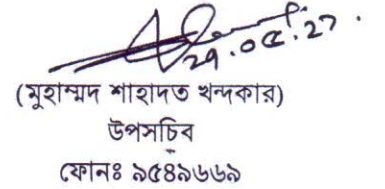 (মুহাম্মদ শাহাদত খন্দকার)
উপসচিব
ফোনঃ ৯৫৪৯৬৬৯